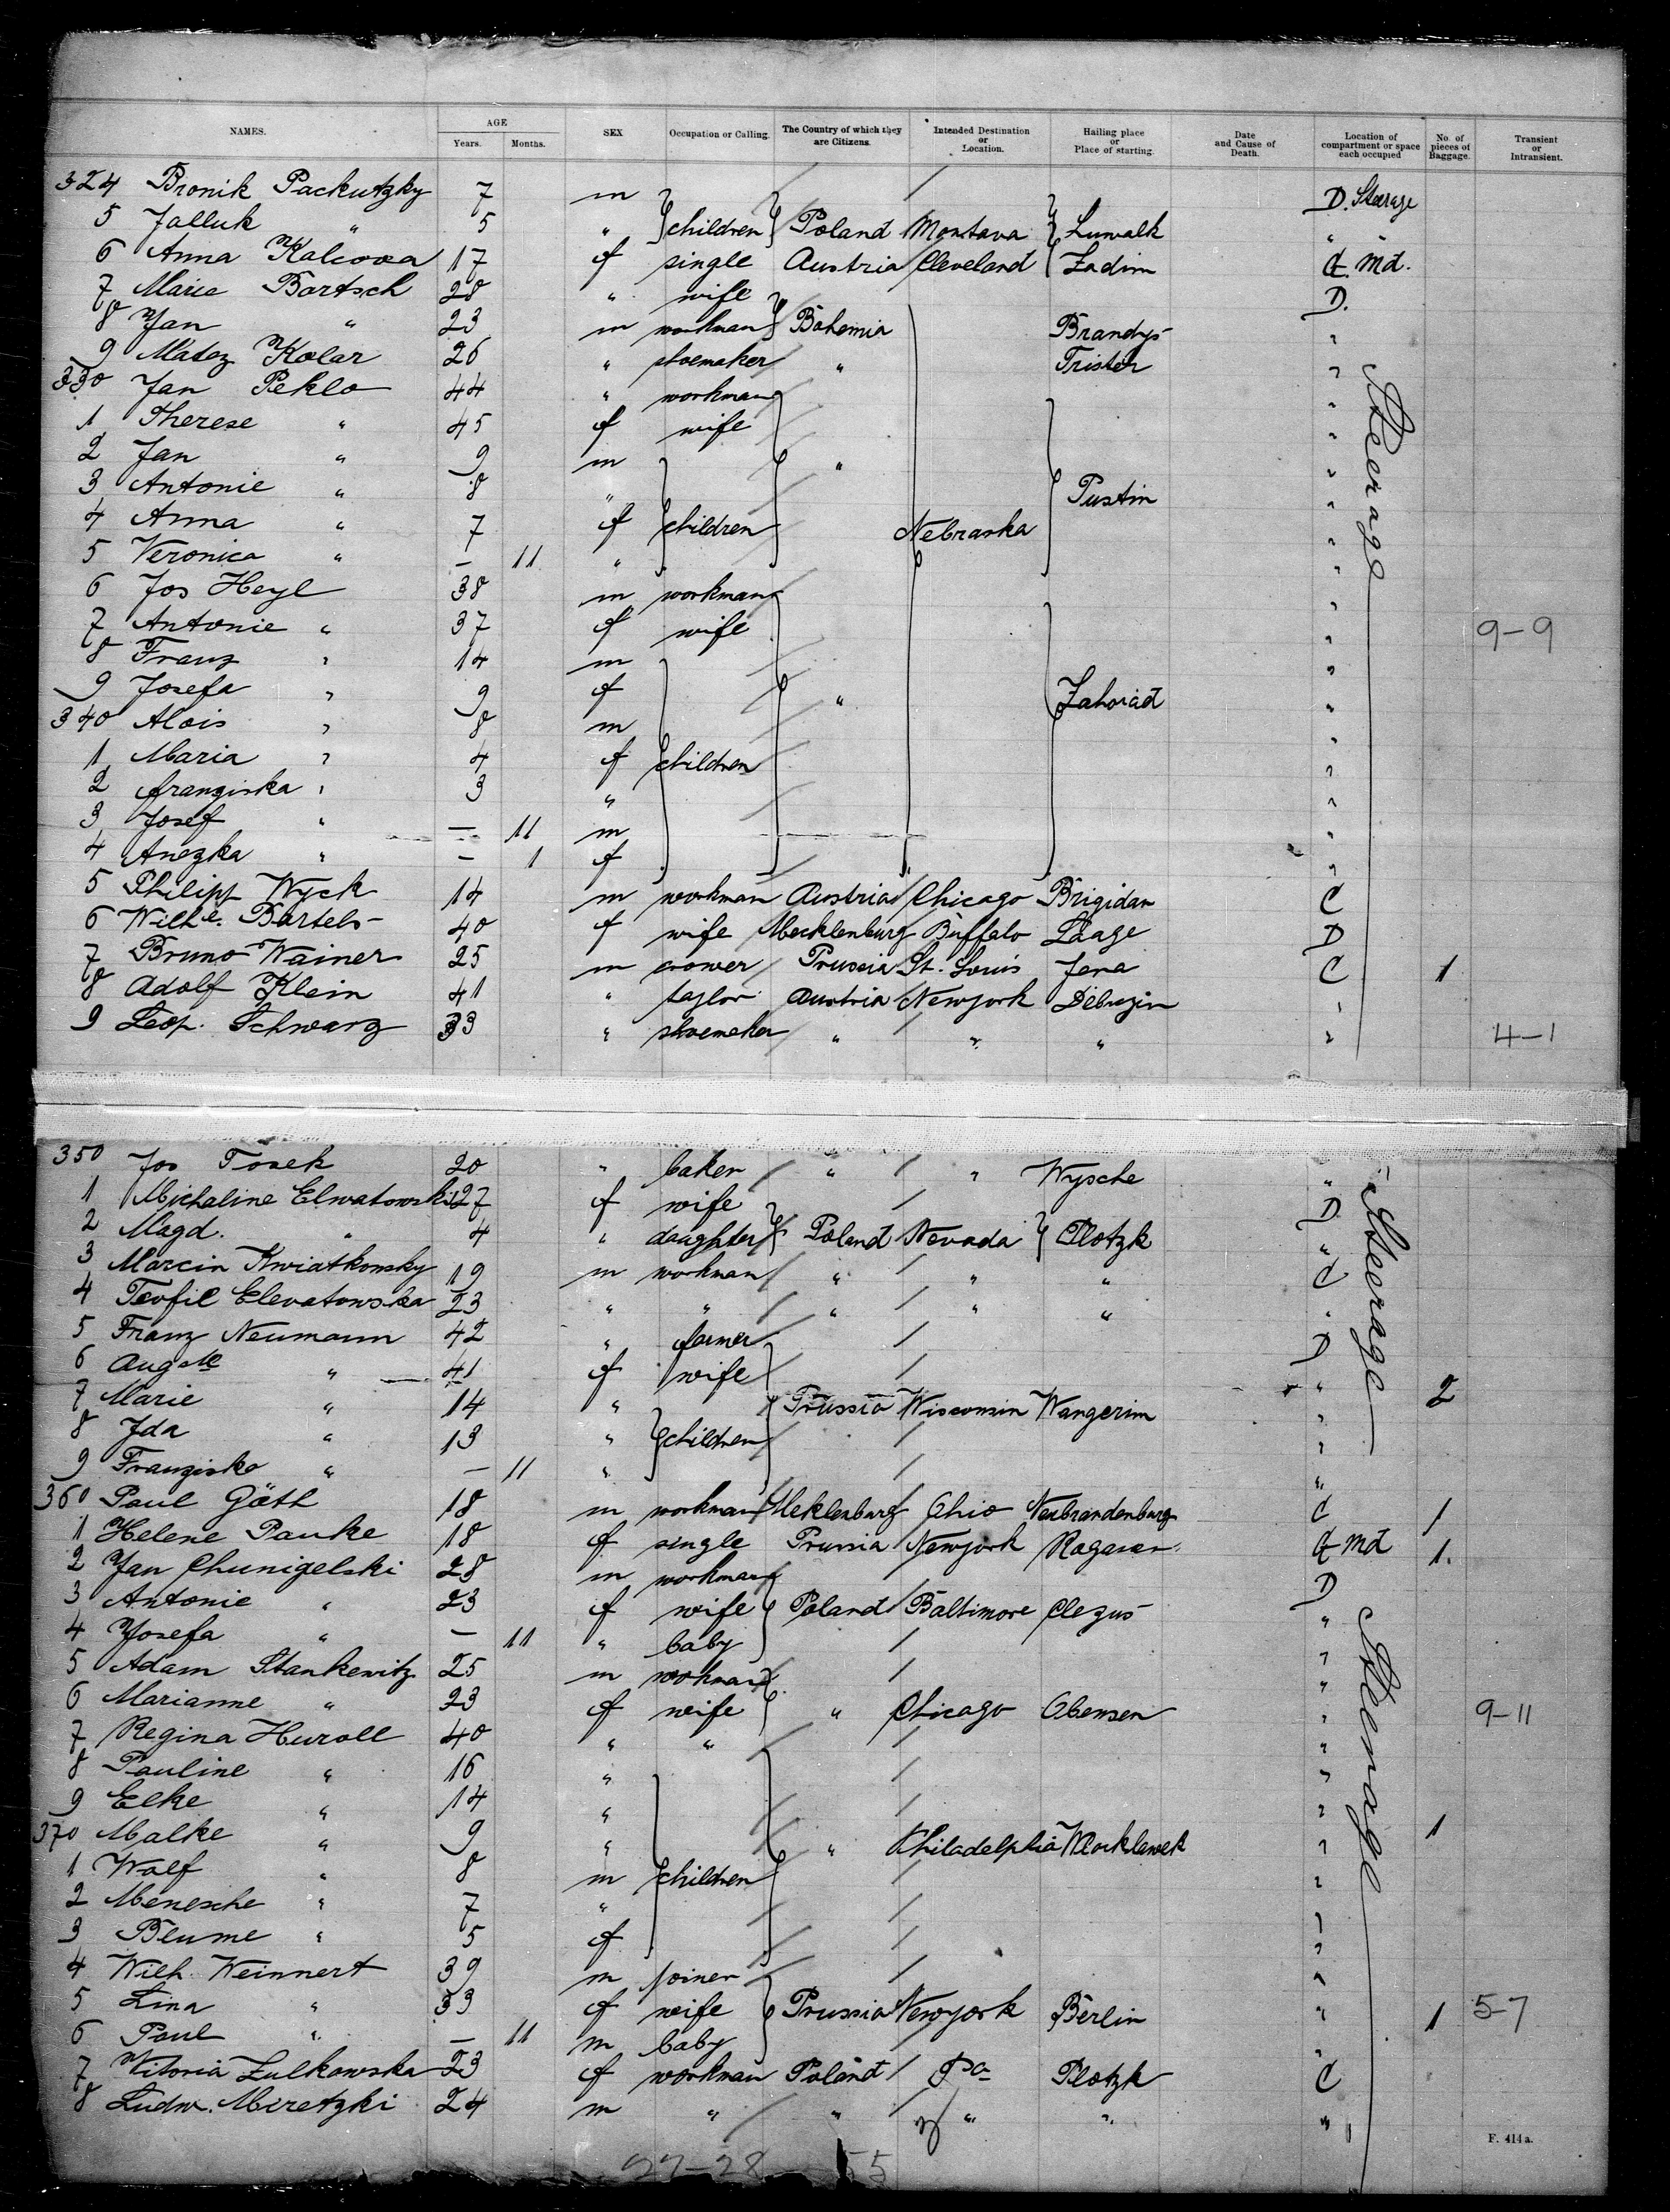 NAMES. AGE Years. Months. SEX Occupation or Calling. The Country of which they are Citizens. Intended Destination or Location. Hailing place or Place of starting. Date and Cause of Death. Location of compartment or space each occupied No. of pieces of Baggage. Transient or Intransient.
324 Bronik Packutzky 7 m D. Steerage
5 Jalluk " 5 " children Poland Montana Luwalk "
6 Anna Kalcova 17 f single Austria Cleveland Zadim Md.
7 Marie Bartsch 28 " wife D.
8 Jan " 23 m workman Bohemia Brandys "
9 Matez Kolar 26 " shoemaker " "
330 Jan Peklo 44 " workman "
1 Therese " 45 f wife "
2 Jan " 9 m " "
3 Antonie " 8 " Pustin "
4 Anna " 7 f children Nebraska "
5 Veronica " — 11 " "
6 Jos Heyl 38 m workman "
7 Antonie " 37 f wife " 9-9
8 Franz " 14 m "
9 Josefa " 9 f " Zahorad "
340 Alois " 8 m "
1 Maria " 4 f children "
2 Franziska " 3 " "
3 Josef " — 11 m "
4 Anezka " — 1 f "
5 Philipp Wyck 14 m workman Austria Chicago Brigidan C
6 Wilhe. Bartels 40 f wife Mecklenburg Buffalo Laage D
7 Bruno Wainer 25 m Prussia St. Louis Jena C 1
8 Adolf Klein 41 " taylor Austria Newyork Debrezin "
9 Leop. Schwarz 33 " shoemaker " " " " 4-1
Steerage
350 Jos Tosek 20 " baker " " Wysche "
1 Michaline Elwatowski 27 f wife D
2 Magd. " 4 " daughter Poland Nevada Plotzk "
3 Marcin Kwiatkowsky 19 m workman " " " C
4 Teofil Elevatowska 23 " " " " " "
5 Franz Neumann 42 " farmer D
6 Auguste " 41 f wife "
7 Marie " 14 " Prussia Wisconsin Wangerim " 2
8 Ida " 13 " children "
9 Franziska " — 11 " "
360 Paul Gäth 18 m workman Meklenburg Ohio Neubrandenburg C 1
1 Helene Pauke 18 f single Prussia Newyork Md 1.
2 Jan Chunigelski 28 m workman D
3 Antonie " 23 f wife Poland Baltimore "
4 Josefa " — 11 " baby "
5 Adam Stankewitz 25 m workman "
6 Marianne " 23 f wife " Chicago " 9-11
7 Regina Huroll 40 " " "
8 Pauline " 16 " "
9 Elke " 14 " "
370 Malke " 9 " " Philadelphia " 1
1 Wolf " 8 m children "
2 Menesche " 7 " "
3 Blume " 5 f "
4 Wilh. Weinnert 39 m joiner "
5 Lina " 33 f wife Prussia Newyork Berlin " 1 5-7
6 Paul " — 11 m baby "
7 Vitoria Zulkowska 23 f workman Poland Pa Plotzk C
8 Ludw. Miretzki 24 m " " " " "
Steerage
Steerage
F. 414 a.
27-28 55